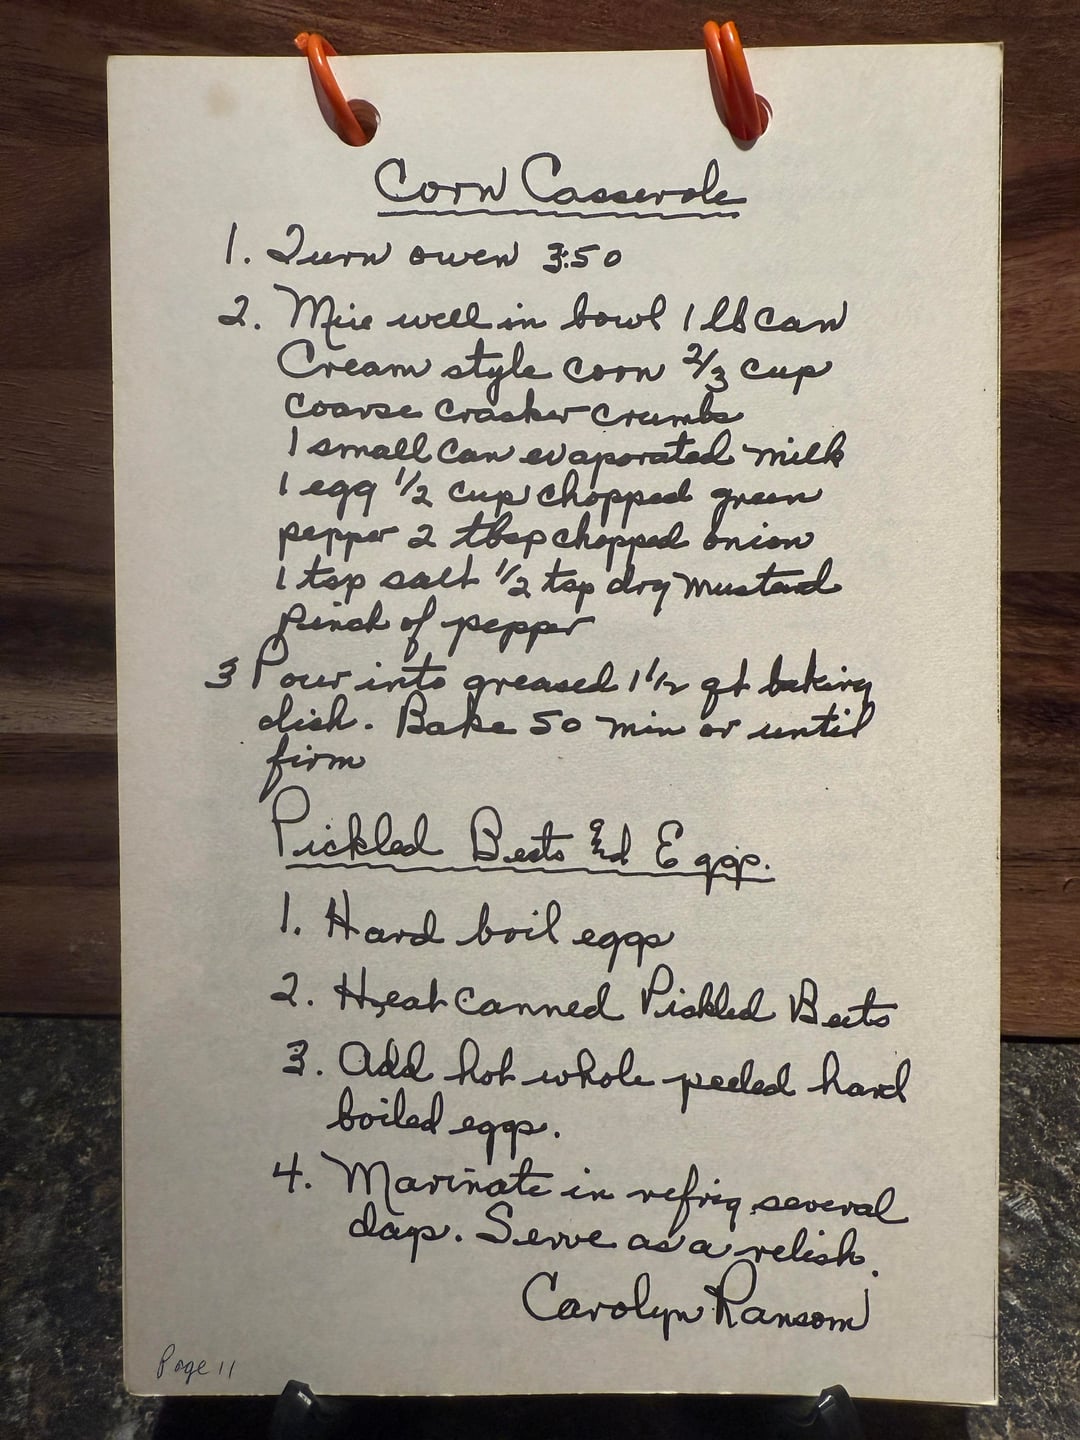 Corn Casserole
1. Turn oven 350
2. Mix well in bowl 1 lb can
Cream style corn 2/3 cup
coarse cracker crumbs
1 small can evaporated milk
1 egg 1/2 cup chopped green
pepper 2 tbsp chopped onion
1 tsp salt 1/2 tsp dry mustard
pinch of pepper
3 Pour into greased 1 1/2 qt baking
dish. Bake 50 min or until
firm
Pickled Beets and Eggs.
1. Hard boil eggs
2. Heat canned Pickled Beets
3. Add hot whole peeled hard
boiled eggs.
4. Marinate in refrig several
days. Serve as a relish.
Carolyn Ransom
Page 11